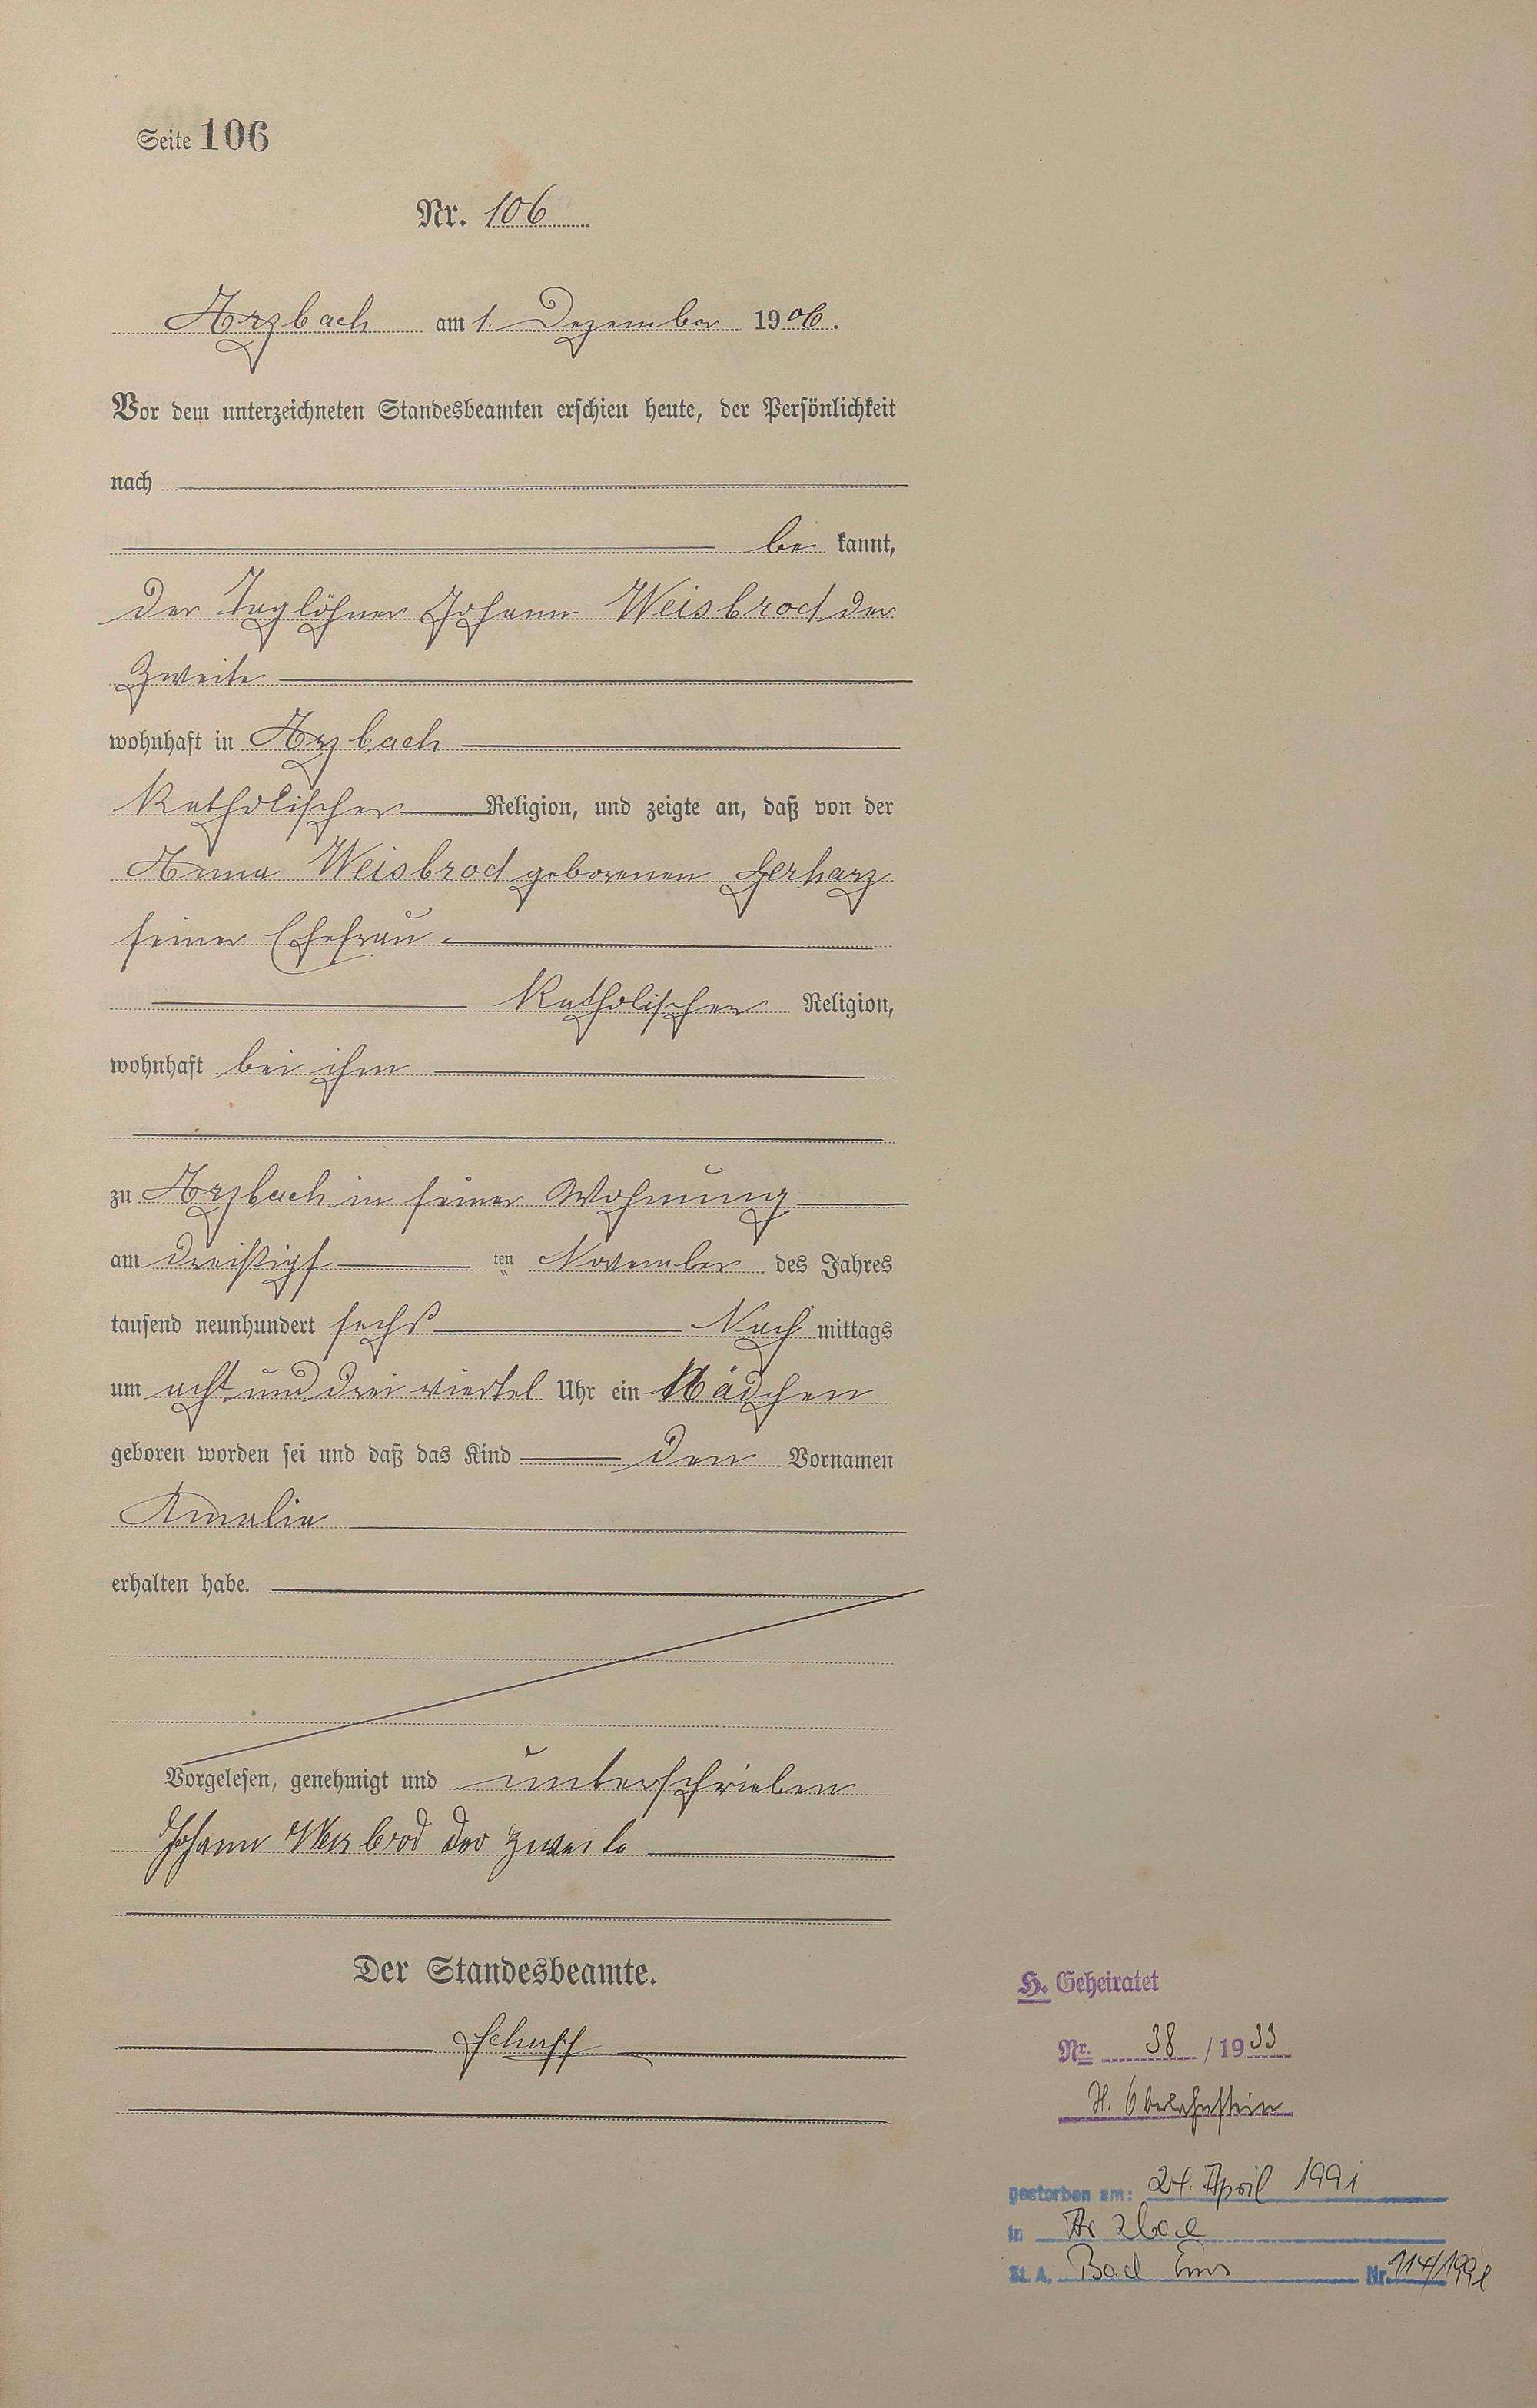 Seite 106
Nr. 106
Arzbach am 1. Dezember 1906.
Vor dem unterzeichneten Standesbeamten erschien heute, der Persönlichkeit
nach
be kannt,
der Taglöhner Johann Weisbrod der
Zweite
wohnhaft in Arzbach
katholischer Religion, und zeigte an, daß von der
Anna Weisbrod geborenen Gerharz
seiner Ehefrau
katholischer Religion,
wohnhaft bei ihm
zu Arzbach in seiner Wohnung
am dreißigs ten November des Jahres
tausend neunhundert sechs Nach mittags
um acht und drei viertel Uhr ein Mädchen
geboren worden sei und daß das Kind den Vornamen
Amalia
erhalten habe.
Vorgelesen, genehmigt und unterschrieben
Johann Weisbrod der Zweite
Der Standesbeamte.
H. Geheiratet
Nr. 38 / 1933
St. Oberlahnstein
gestorben am: 24. April 1991
in Arzbach
St. A. Bad Ems Nr. 114/1991